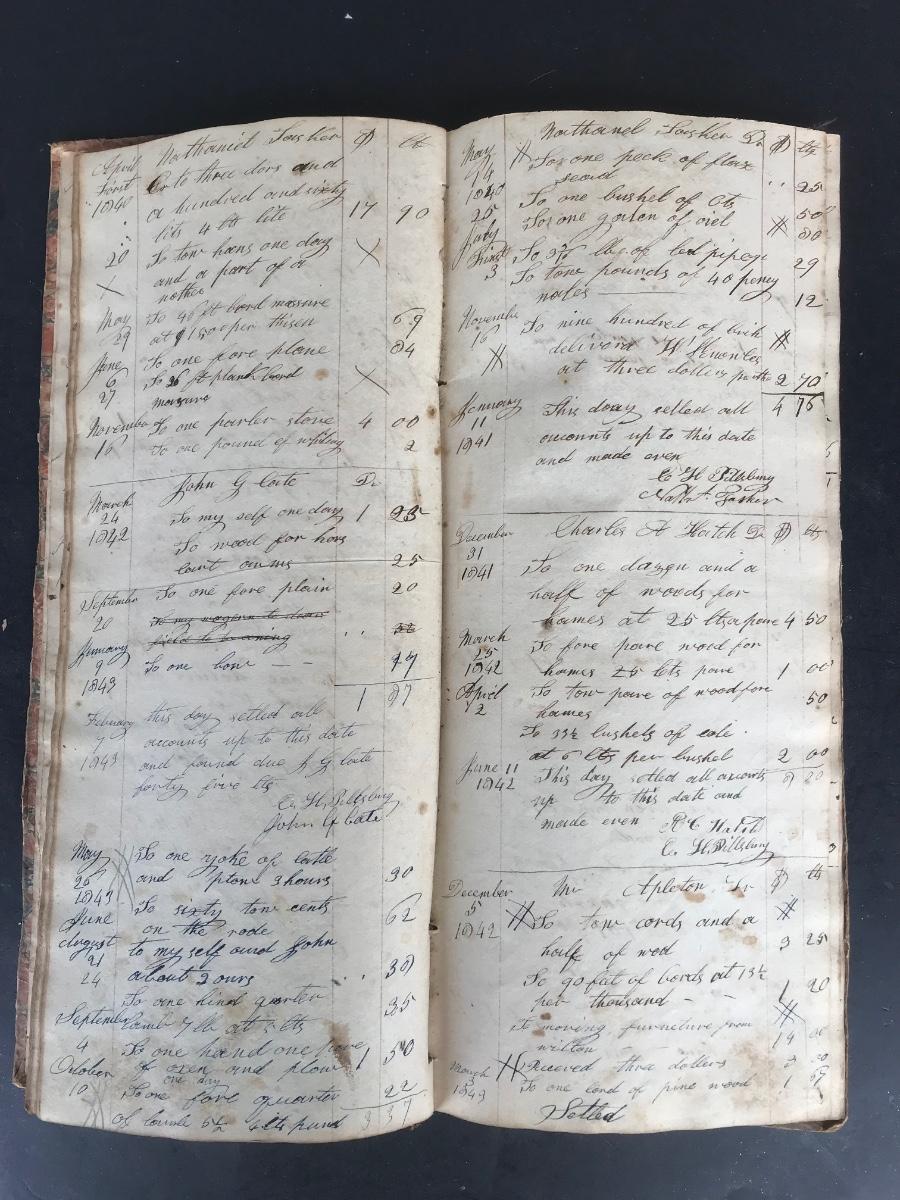 April Nathaniel Tasker D Cts
First Cr to three dors and
1840 a hundred and sixty
lits 4 cts lite 17 90
20 To tow hans one day
and a part of a
nother
May To 46 ft bord measure
29 at $1500 per thisen 69
June To one fore plane 84
6 To 26 ft plank bord
27 measure
November To one parler stove 4 00
16 To one pound of whiting 2
John G Cate Dr
March
24 To my self one day 1 25
1842 To wood for hors
cart arms 25
September To one fore plain 20
20 To my wagern to
January
9 To one bow - - 17
1843 1 87
February this day setled all
7 accounts up to this date
1843 and found due J G Cate
forty five cts
C. H. Pillsbury
John G Cate
May To one yoke of catle
26 and 3 hours 30
1843
June To sixty tow cents
on the rode 62
August to my self and John
21
24 about 2 ours 38
To one hind qurter
September lamb 7 lb at 5 cts 35
4 To one hand one pare
October of oxen and plow 1 50
one day
10 To one fore quarter 22
of lamb 5½ 4 cts pund 3 37
Nathanel Tasker Dr D cts
May
14 For one peck of flax
1840 seard 25
25 To one bushel of Ots 50
July For one galen of oiel 80
First To 3¾ lbs of led pipe 29
3 To tow pounds of 40 peney
nales 12
November
16 To nine hundred of brik
deliverd
at three dollars 2 70
January 4 76
11 This day setled all
1841 accounts up to this date
and made even
C H Pillsbury
Nathl Tasker
December Charles A Hatch Dr D cts
31
1841 To one dazen and a
half of woods for
hames at 25 cts a pare 4 50
March To fore pare wood for
25
1842 hames 25 cts pare 1 00
April To tow pare of wood for 50
2 hames
To 33½ bushels of cole
at 6 cts per bushel 2 00
June 11 This day setled all accounts 8 20
1842 up to this date and
made even
C. H. Pillsbury
December Mr Apleton Dr D cts
5
1842 To tow cords and a
half of wod 3 25
To 90 feet of bords at 13½
per thousand - - 1 20
To moving furneture from
wilton 14 00
March Received three dollars 3 00
3
1843 To one lord of pine wood 1 67
Setled